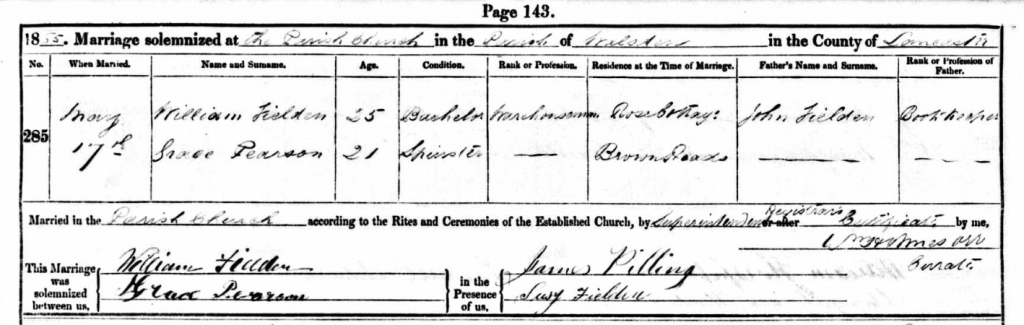 Page 143.
1855. Marriage solemnized at the Parish Church in the Parish of Walsden in the County of Lancaster
No. When Married. Name and Surname. Age. Condition. Rank or Profession. Residence at the Time of Marriage. Father's Name and Surname. Rank or Profession of Father.
285 May 17th
William Fielden 25 Bachelor Warehouseman Rose Cottage John Fielden Bookkeeper
Grace Pearson 21 Spinster — Brown Roads — — — — — —
Married in the Parish Church according to the Rites and Ceremonies of the Established Church, by Superintendent Registrars Certificate or after by me,
This Marriage was solemnized between us, William Fielden Grace Pearson in the Presence of us, James Pilling Susy Fielden
Curate